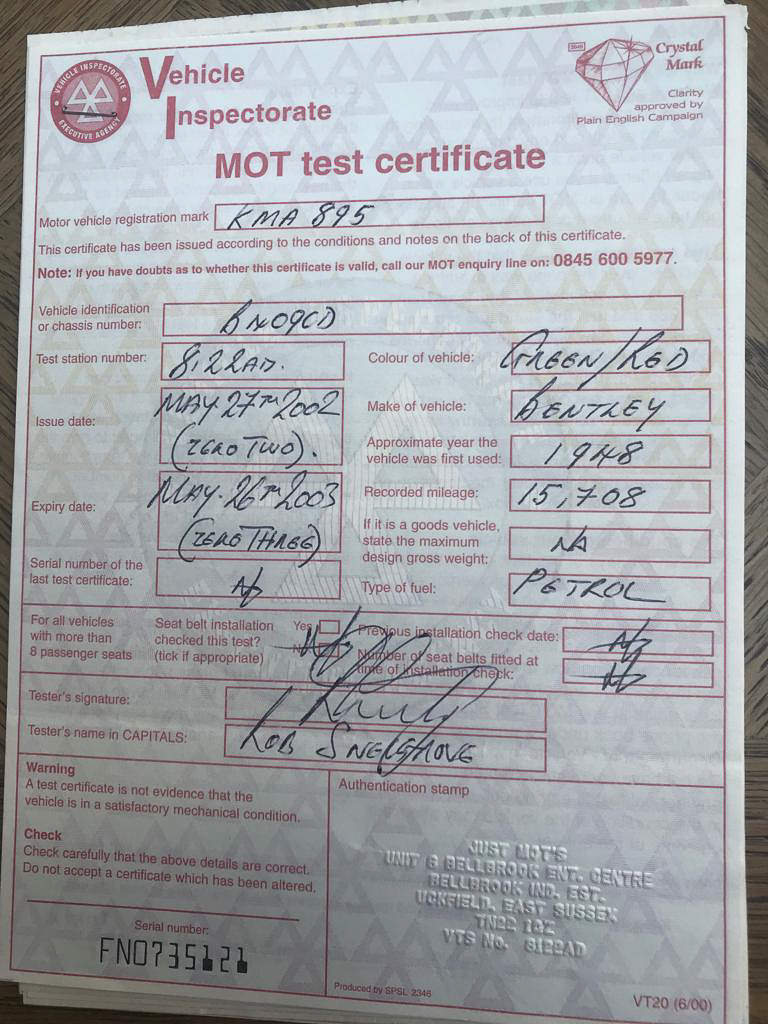 VEHICLE INSPECTORATE
EXECUTIVE AGENCY
Vehicle
Inspectorate
Crystal
Mark
Clarity
approved by
Plain English Campaign
MOT test certificate
Motor vehicle registration mark KMA 895
This certificate has been issued according to the conditions and notes on the back of this certificate.
Note: If you have doubts as to whether this certificate is valid, call our MOT enquiry line on: 0845 600 5977.
Vehicle identification
or chassis number: B409CD
Test station number: 8122AD.
Colour of vehicle: GREEN/RED
Issue date: MAY 27TH 2002
(ZERO TWO).
Make of vehicle: BENTLEY
Approximate year the
vehicle was first used: 1948
Expiry date: MAY. 26TH 2003
(ZERO THREE)
Recorded mileage: 15,708
If it is a goods vehicle,
state the maximum
design gross weight: NA
Serial number of the
last test certificate: NA
Type of fuel: PETROL
For all vehicles
with more than
8 passenger seats
Seat belt installation
checked this test?
(tick if appropriate)
Yes
No
NA
Previous installation check date: NA
Number of seat belts fitted at
time of installation check: NA
Tester's signature:
Tester's name in CAPITALS: ROB SNELGROVE
Warning
A test certificate is not evidence that the
vehicle is in a satisfactory mechanical condition.
Check
Check carefully that the above details are correct.
Do not accept a certificate which has been altered.
Serial number:
FN0735121
Authentication stamp
JUST MOT'S
UNIT 6 BELLBROOK ENT. CENTRE
BELLBROOK IND. EST.
UCKFIELD, EAST SUSSEX
TN22 1QZ
VTS No. 8122AD
Produced by SPSL 2346
VT20 (6/00)